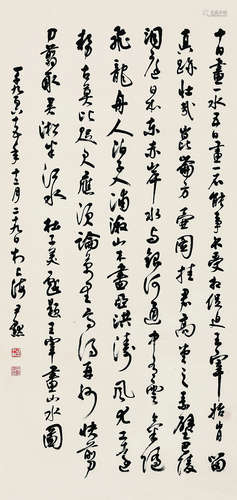 十日畫一水五日畫一石能事不受相促迫王宰始肯留
真跡壯哉崑崙方壺圖挂君高堂之素壁巴陵
洞庭日本東赤岸水與銀河通中有雲氣隨
飛龍舟人漁子入浦漵山木盡亞洪濤風尤工遠
勢古莫比咫尺應須論萬里焉得并州快剪
刀剪取吳淞半江水 杜子美戲題王宰畫山水圖
一千九百六十年十二月於上海 尹默